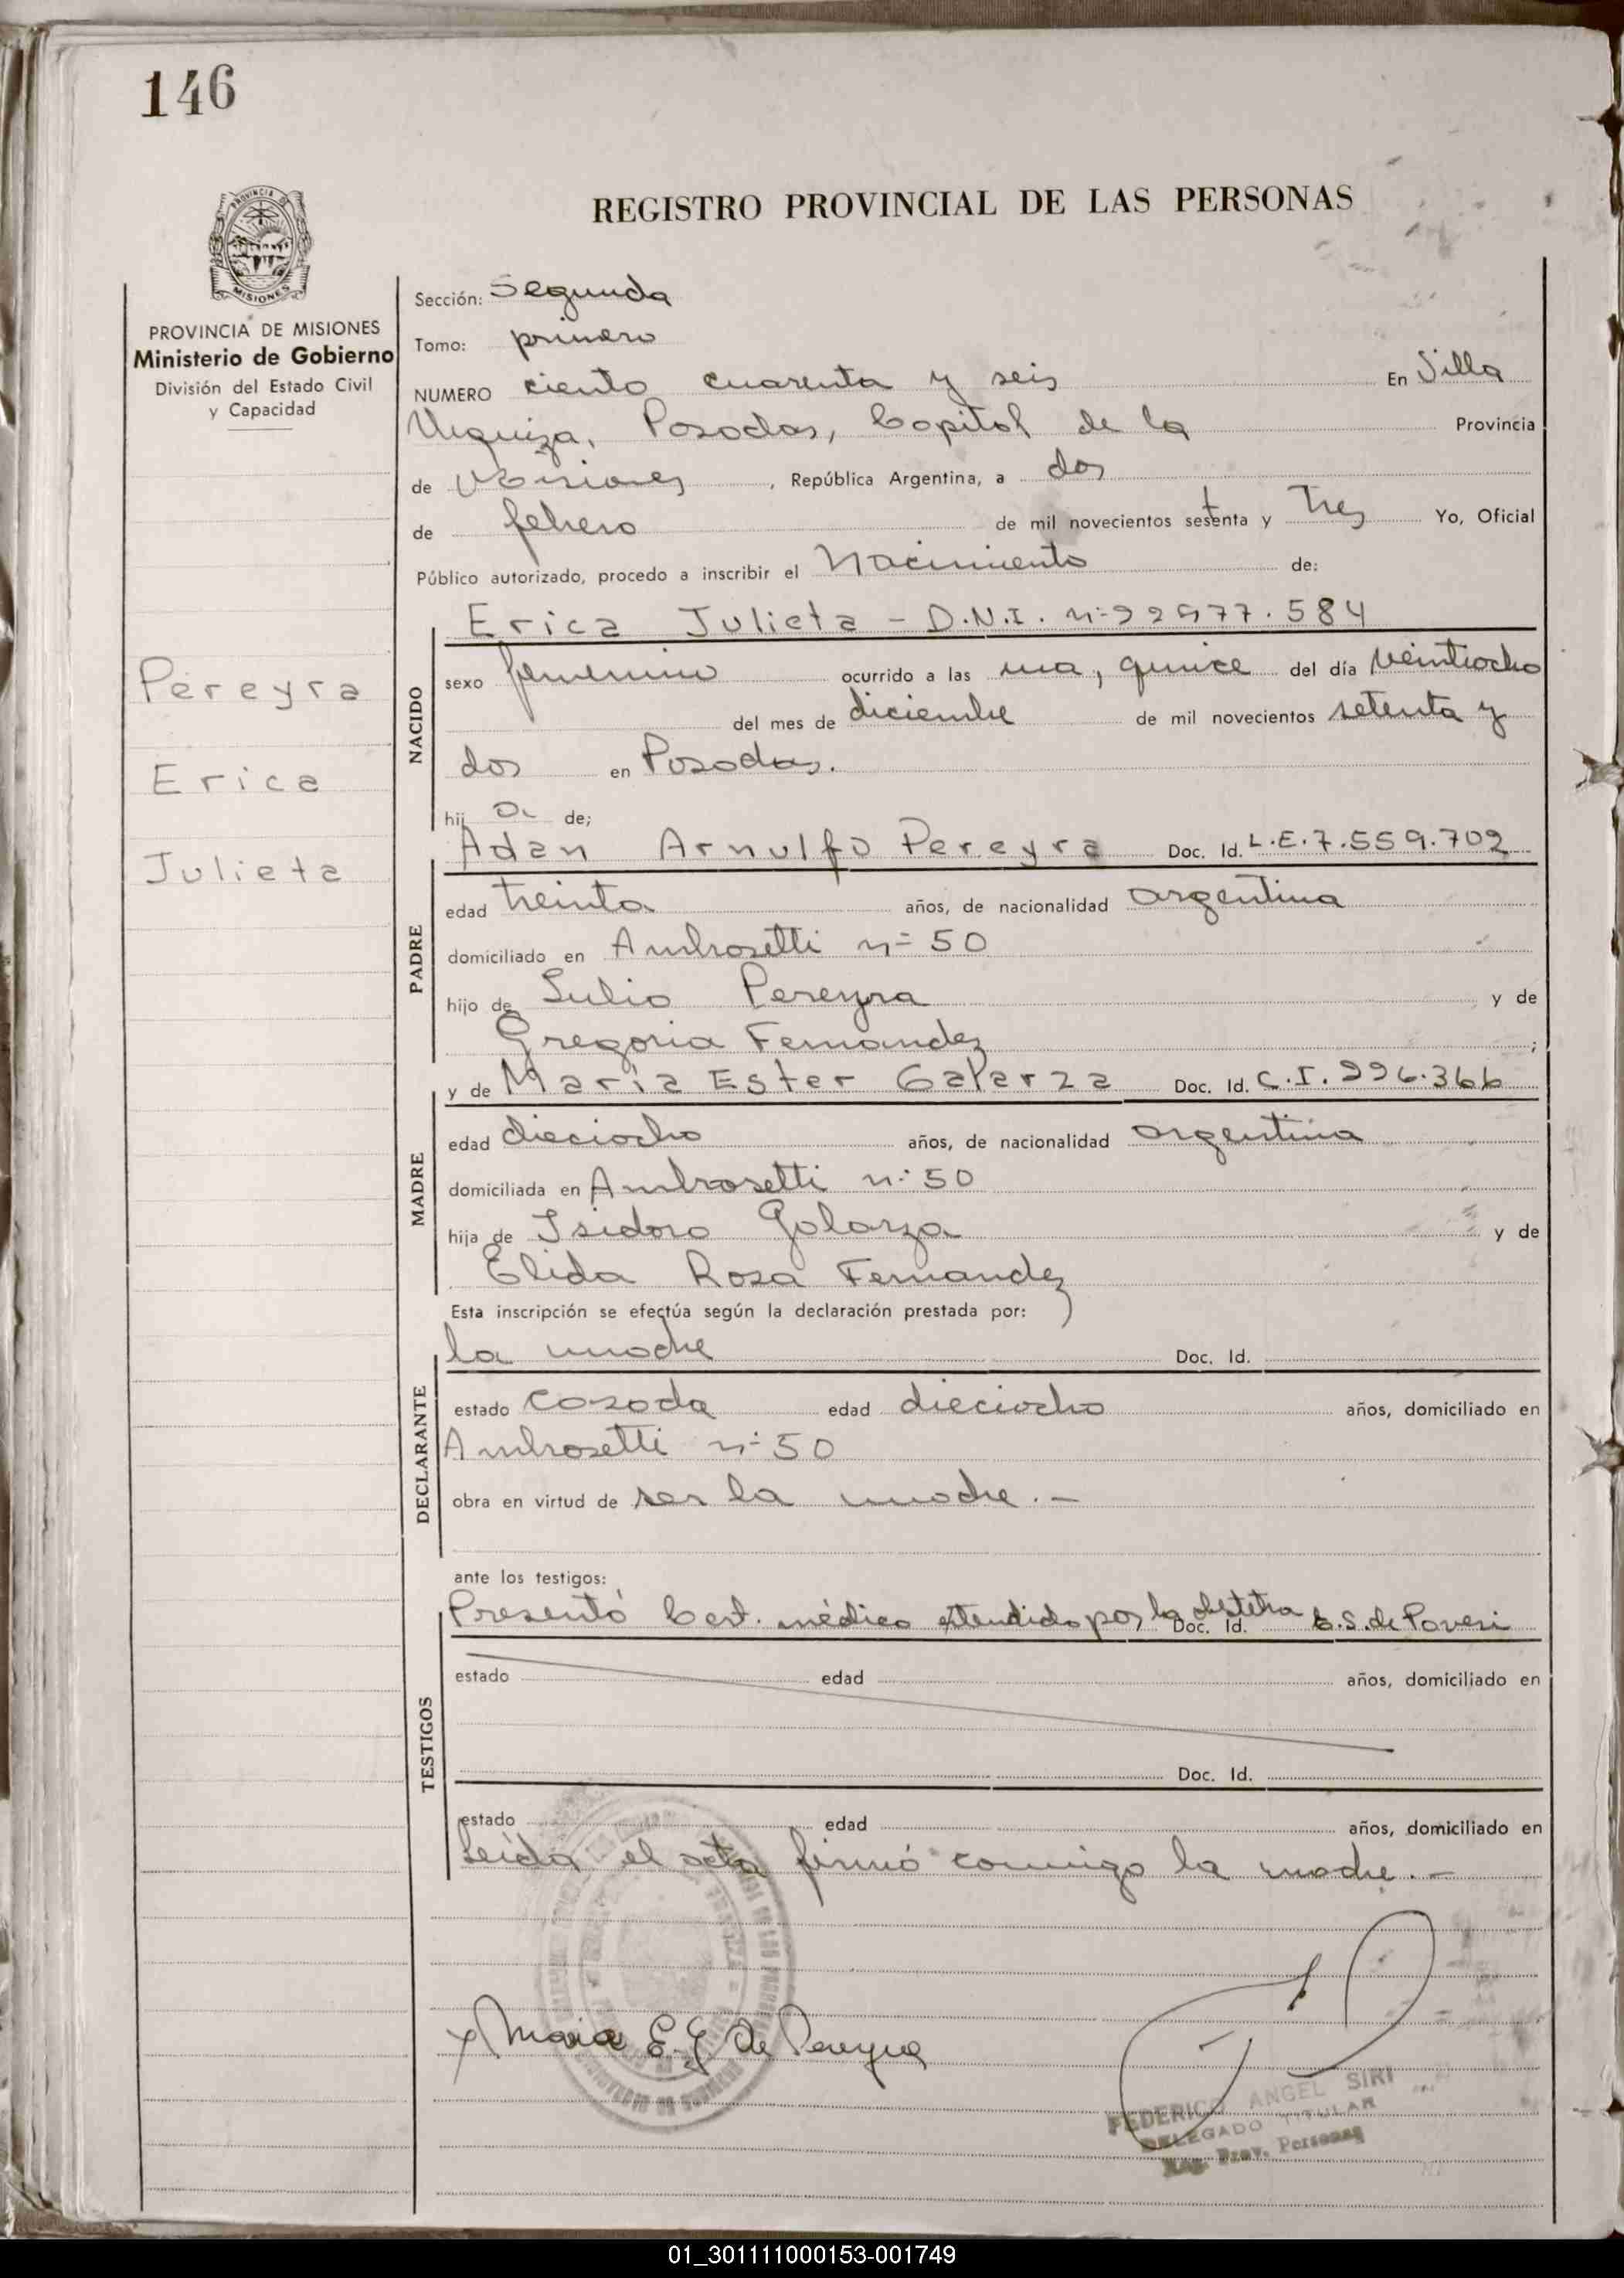 146
PROVINCIA DE
MISIONES
REGISTRO PROVINCIAL DE LAS PERSONAS
PROVINCIA DE MISIONES
Ministerio de Gobierno
División del Estado Civil
y Capacidad
Sección: Segunda
Tomo: primero
NUMERO ciento cuarenta y seis En Villa
Urquiza, Posadas, Capital de la Provincia
de Misiones, República Argentina, a dos
de febrero de mil novecientos setenta y tres Yo, Oficial
Público autorizado, procedo a inscribir el Nacimiento de:
Erica Julieta - D.N.I. nº 22977.584
Pereyra
Erica
Julieta
NACIDO
sexo femenino ocurrido a las una, quince del día veintiocho
del mes de diciembre de mil novecientos setenta y
dos en Posadas.
hij a de;
Adan Arnulfo Pereyra Doc. Id. L.E.7.559.702
PADRE
edad treinta años, de nacionalidad argentina
domiciliado en Ambrosetti nº 50
hijo de Julio Pereyra y de
Gregoria Fernandez ;
y de Maria Ester Galarza Doc. Id. C.I. 296.366
MADRE
edad dieciocho años, de nacionalidad argentina
domiciliada en Ambrosetti nº 50
hija de Isidoro Galarza y de
Elida Rosa Fernandez
Esta inscripción se efectúa según la declaración prestada por:
la madre Doc. Id.
DECLARANTE
estado casada edad dieciocho años, domiciliado en
Ambrosetti nº 50
obra en virtud de ser la madre.-
ante los testigos:
Presentó Cert. médico extendido por la obstetra Doc. Id. E.S. de Pavesi
TESTIGOS
estado edad años, domiciliado en
Doc. Id.
estado edad años, domiciliado en
Leída el acta firmó conmigo la madre.-
x Maria E. G de Pereyra
FEDERICO ANGEL SIRI
DELEGADO TITULAR
Reg. Prov. Personas
01_301111000153-001749